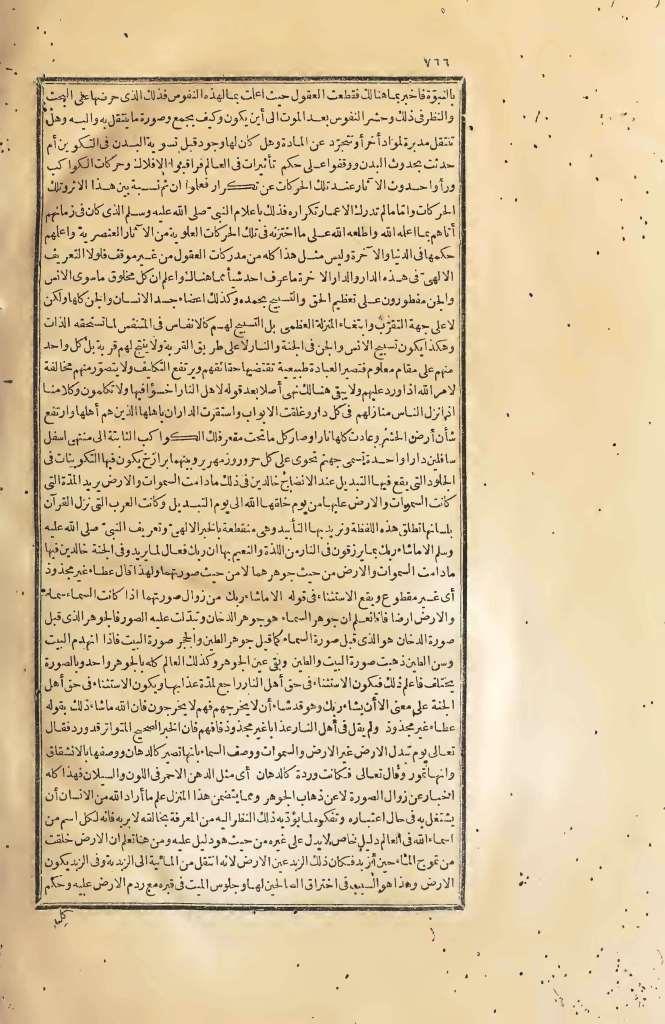 ٧٦٦
بالنبوّة فاخبر بما هنالك فقطعت العقول حيث اعلت بما لهذه النفوس فذلك الذى حرضها على البحث
والنظر فى ذلك وحشر النفوس بعد الموت الى أين يكون وكيف يجمع وصورة ما ينتقل به واليه وهل
تنتقل مدبرة لمواد أخر أو تتجرّد عن المادة وهل كان لها وجود قبل تسوية البدن فى التكوين أم
حدثت بحدوث البدن ووقفوا على حكم تأثيرات فى العالم فراقبوا الافلاك وحركات الكواكب
ورأوا حدوث الآثار عند تلك الحركات عن تكرار فعلموا ان ثم نسبة بين هذا الاثر وتلك
الحركات وامّا ما لم تدرك الاعمار تكراره فذلك باعلام النبىّ صلى الله عليه وسلم الذى كان فى زمانهم
أتاهم بما اعلمه الله واطلعه الله على ما اختزنه فى تلك الحركات العلوية من الآثار العنصرية واعلهم
حكمها فى الدنيا والآخرة وليس مثل هذا كله من مدركات العقول من غير موقف فلولا التعريف
الالهىّ فى هذه الدار والدار الاخرة ما عرف احد شيأ مما هنالك واعلم ان كل مخلوق ما سوى الانس
والجن مفطورون على تعظيم الحق والتسبيح بحمده وكذلك اعضاء جسد الانسان والجن كلها ولكن
لا على جهة التقرّب وابتغاء المنزلة العظمى بل التسبيح لهم كالانفاس فى المتنفس لما تستحقه الذات
وهكذا يكون تسبيح الانس والجن فى الجنة والنار لا على طريق القربة ولا ينتج لهم قربة بل كل واحد
منهم على مقام معلوم فتصير العبادة طبيعية تقتضيها حقائقهم ويرتفع التكليف ولا يتصوّر منهم مخالفة
لامر الله اذا ورد عليهم ولا يبقى هنالك نهى أصلا بعد قوله لاهل النار اخسؤا فيها ولا تكلمون وكلامنا
اذا نزل الناس منازلهم فى كل دار وغلقت الابواب واستقرت الداران باهلها الذين هم أهلها وارتفع
شأن أرض الحشر وعادت كلها نارا وصار كل ما تحت مقعر فلك الكواكب الثابتة الى منتهى اسفل
سافلين دارا واحدة تسمى جهنم تحوى على كل حرور وزمهرير وبينهما برازخ يكون فيها التكوينات فى
الجلود التى يقع فيها التبديل عند الانضاج خالدين فى ذلك ما دامت السموات والارض يريد المدّة التى
كانت السموات والارض عليها من يوم خلقها الله الى يوم التبديل وكانت العرب التى نزل القرآن
بلسانها تطلق هذه اللفظة وتريد بها التأبيد وهى منقطعة بالخبر الالهىّ وتعريف النبىّ صلى الله عليه
وسلم الا ما شاء ربك بما يرزقون فى النار من اللذة والنعيم بها ان ربك فعال لما يريد وفى الجنة خالدين فيها
ما دامت السموات والارض من حيث جوهرهما لا من حيث صورتهما ولهذا قال عطاء غير مجذوذ
أى غير مقطوع ويقع الاستثناء فى قوله الا ما شاء ربك من زوال صورتهما اذا كانت السماء سماء
والارض ارضا فانا نعلم ان جوهر السماء هو جوهر الدخان وتبدّلت عليه الصور فالجوهر الذى قبل
صورة الدخان هو الذى قبل صورة السماء كما قبل جوهر الطين والحجر صورة البيت فاذا انهدم البيت
وسن الطين ذهبت صورة البيت والطين وبقى عين الجوهر وكذلك العالم كله بالجوهر واحد وبالصورة
يختلف فاعلم ذلك فيكون الاستثناء فى حق أهل النار راجع لمدّة عذابها ويكون الاستثناء فى حق أهل
الجنة على معنى الا أن يشاء ربك وهو قد شاء أن لا يخرجهم فهم لا يخرجون فان الله ما شاء ذلك بقوله
عطاء غير مجذوذ ولم يقل فى أهل النار عذابا غير مجذوذ فافهم فان الخبر الصحيح المتواتر قد ورد فقال
تعالى يوم تبدل الارض غير الارض والسموات ووصف السماء بانها تصير كالدهان ووصفها بالانشقاق
وانها تمور وقال تعالى فكانت وردة كالدهان أى مثل الدهن الاحمر فى اللون والسيلان فهذا كله
اخبار عن زوال الصورة لا عن ذهاب الجوهر ومما يتضمن هذا المنزل علم ما أراد الله من الانسان أن
يشتغل به فى حال اعتباره وتفكره لما يؤدّيه ذلك النظر اليه من المعرفة بخالقه لا بربه فانه لكل اسم من
اسماء الله فى العالم دليل خاص لا يدل على غيره من حيث هو دليل عليه ومن هنا تعلم ان الارض خلقت
من تمويج الماء حين أزبد فكان ذلك الزبد عين الارض لانه انتقل من المائية الى الزبدية وفى الزبد يكون
الارض وهذا هو السبب فى اختراق الصالحين لها وجلوس الميت فى قبره مع ردم الارض عليه وحكم